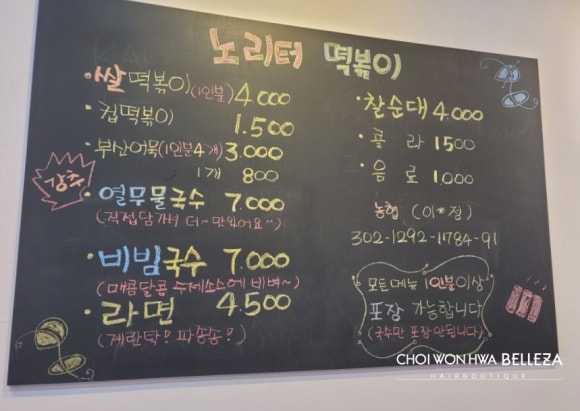 노리터 떡볶이
· 쌀떡볶이 (1인분) 4.000
· 컵떡볶이 1.500
· 부산어묵 (1인분 4개) 3.000
1개 800
강추
· 열무물국수 7.000
(직접담가서 더~ 맛있어요~)
· 비빔국수 7.000
(매콤달콤 수제소스에 비벼~)
· 라면 4.500
(계란탁! 파송송!)
· 찰순대 4.000
· 콜라 1500
· 음료 1.000
농협 (이*절)
302-1292-1784-91
모든메뉴 1인분이상
포장 가능합니다
(국수만 포장 안됩니다)
CHOI WON HWA BELLEZA
HAIRBOUTIQUE